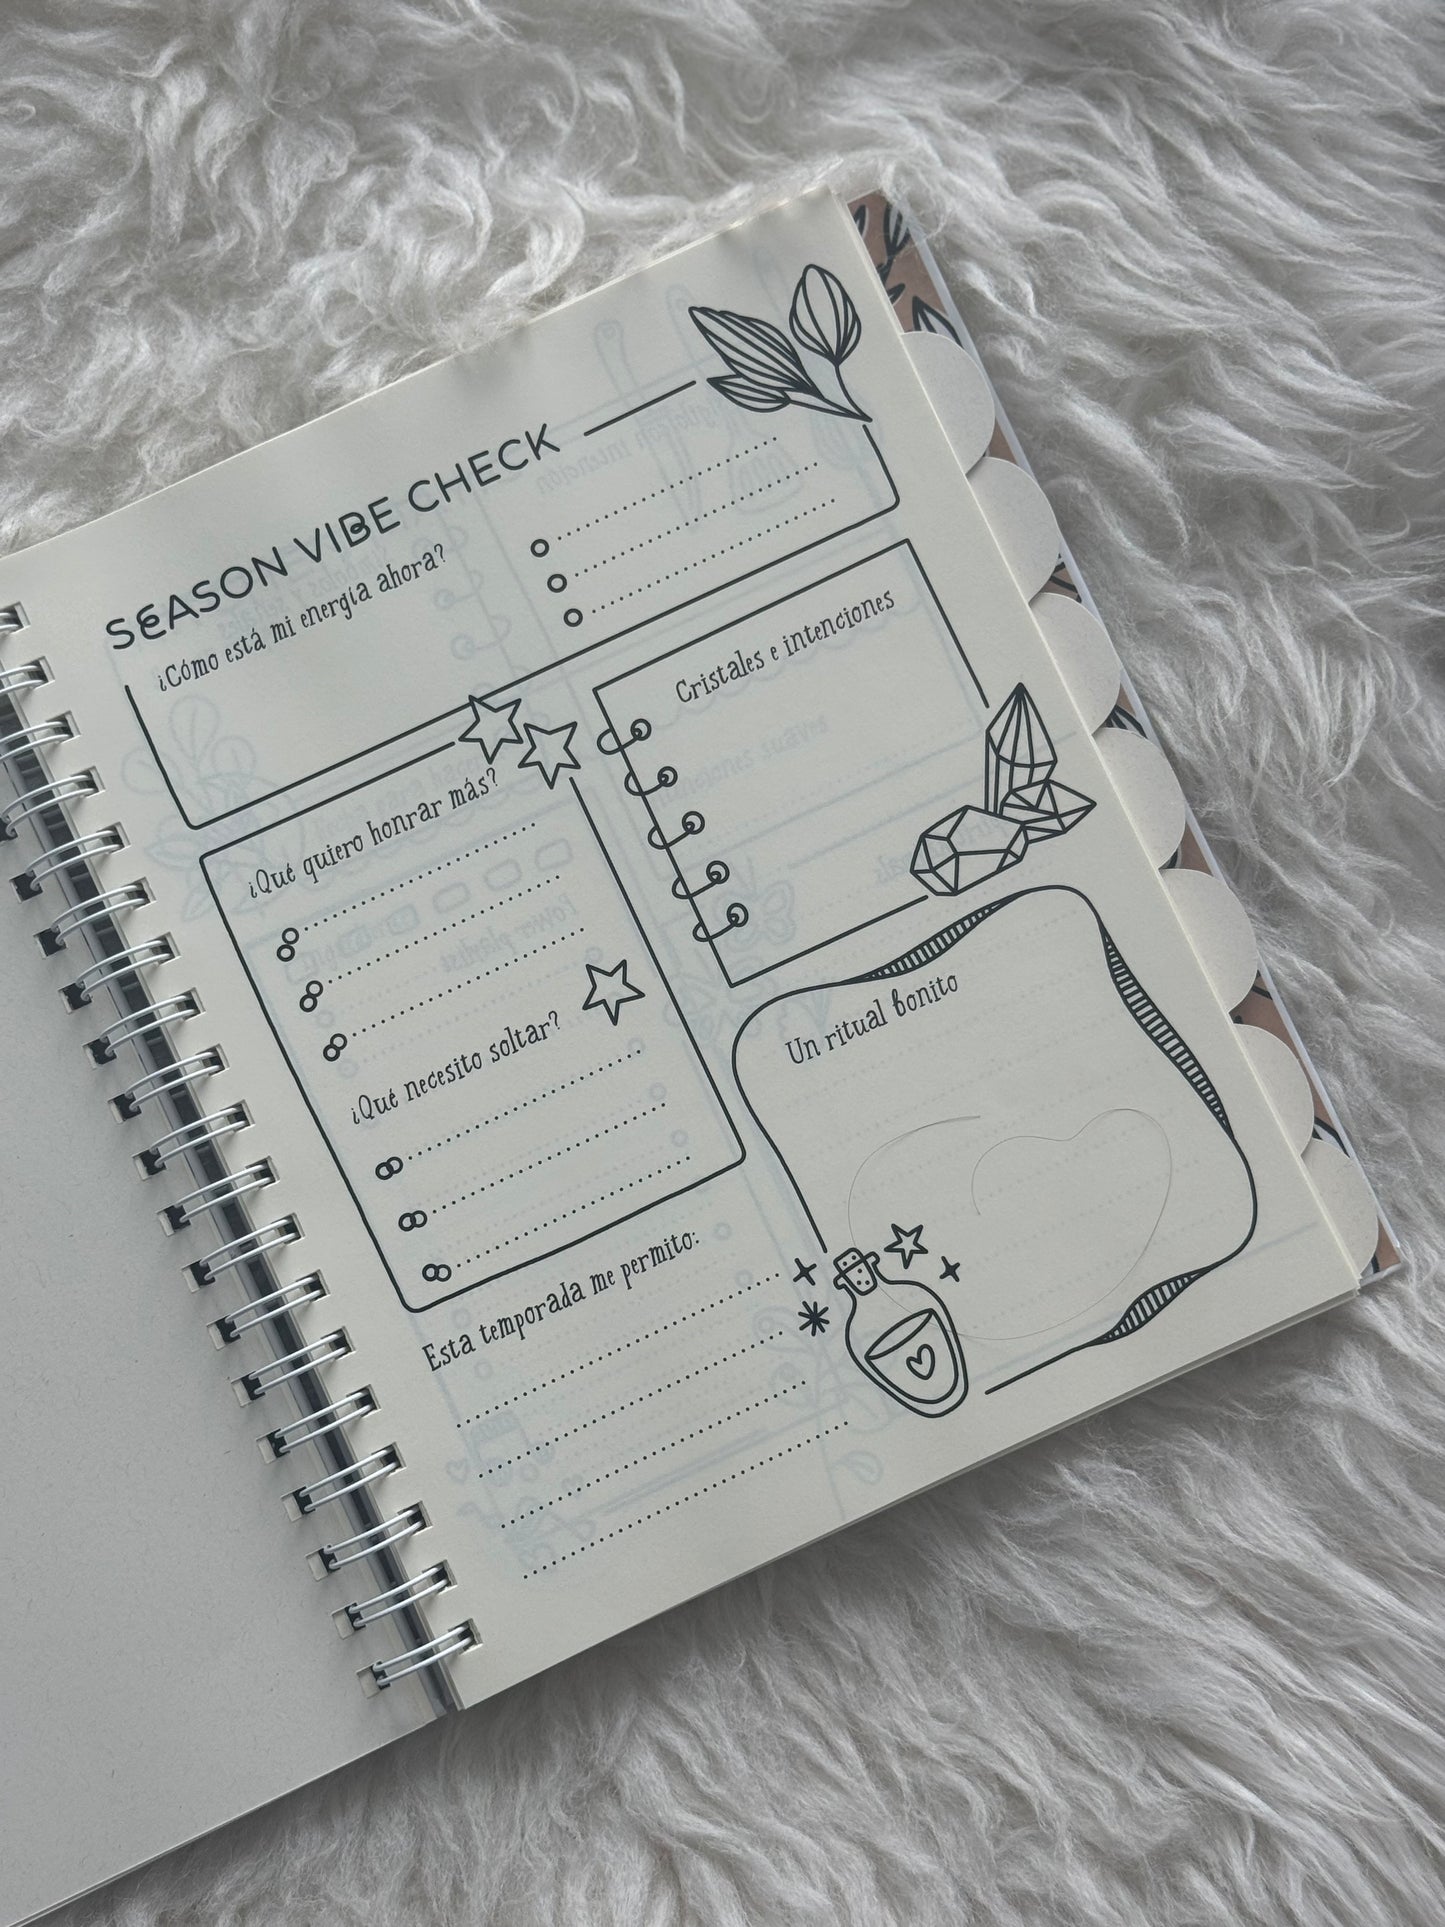 SEASON VIBE CHECK
¿Cómo está mi energía ahora?
¿Qué quiero honrar más?
¿Qué necesito soltar?
Esta temporada me permito:
Cristales e intenciones
Un ritual bonito